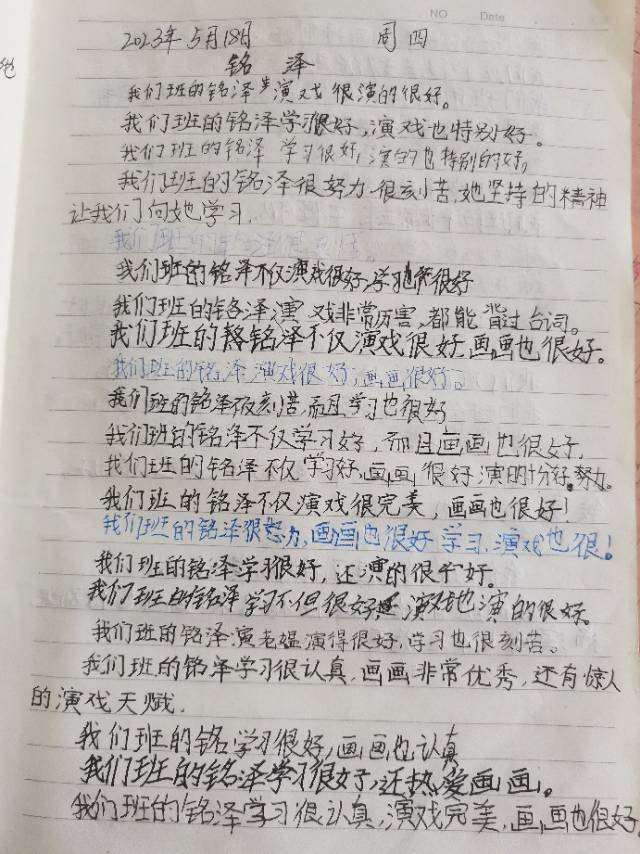 NO Date
2023年5月18日 周四
铭泽
我们班的铭泽演戏很演的很好。
我们班的铭泽学习很好,演戏也特别好。
我们班的铭泽 学习很好,演的也特别的好,
我们班的铭泽很努力 很刻苦,她坚持的精神
让我们向她学习.
我们班的
我们班的铭泽不仅演戏很好,学习也很好
我们班的铭泽演戏非常厉害,都能背过台词。
我们班的铭泽不仅演戏很好,画画也很好。
我们班的铭泽演戏很好,画画很好。
我们班的铭泽不仅刻苦,而且学习也很好
我们班的铭泽不仅学习好,而且画画也很好,
我们班的铭泽不仅学习好,画画很好演的十分好。努力。
我们班的铭泽不仅演戏很完美,画画也很好!
我们班的铭泽很努力,画画也很好学习,演戏也很!
我们班的铭泽学习很好,还演的很好。
我们班的铭泽学习不但很好,演戏也演的很好。
我们班的铭泽演老媪演得很好,学习也很刻苦。
我们班的铭泽学习很认真,画画非常优秀,还有惊人
的演戏天赋.
我们班的铭学习很好,画画也认真
我们班的铭泽学习很好,还热爱画画。
我们班的铭泽学习很认真,演戏完美,画画也很好。